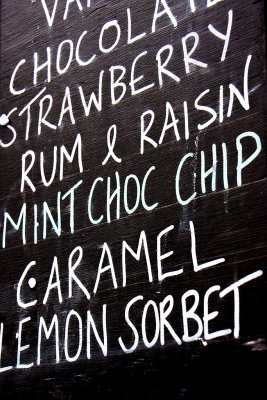 VAN
CHOCOLATE
STRAWBERRY
RUM & RAISIN
MINT CHOC CHIP
CARAMEL
LEMON SORBET